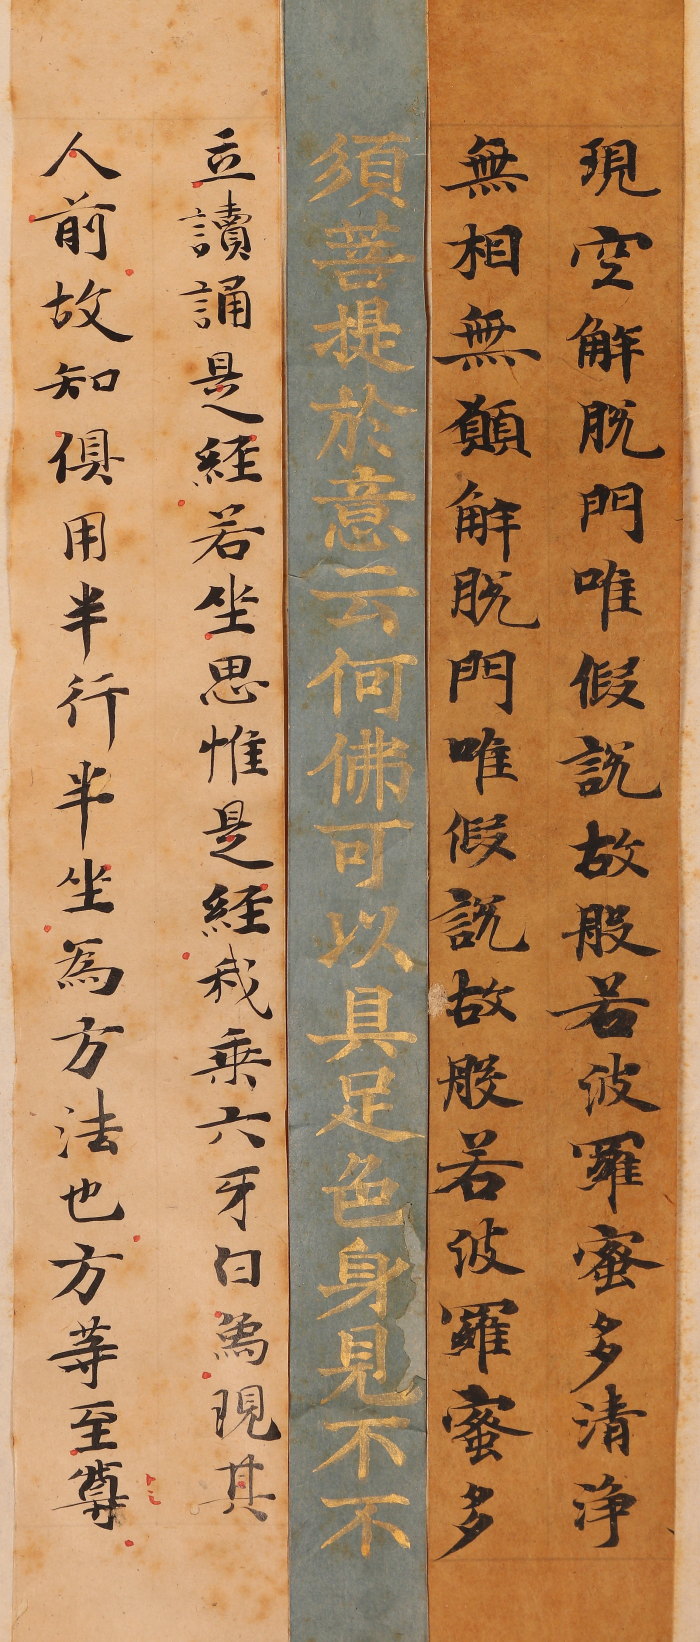 現空解脱門唯假説故般若波羅蜜多清淨
無相無願解脱門唯假説故般若波羅蜜多
須菩提於意云何佛可以具足色身見不不
立讀誦是經若坐思惟是經我乗六牙白為現其
人前故知俱用半行半坐為方法也方等至尊